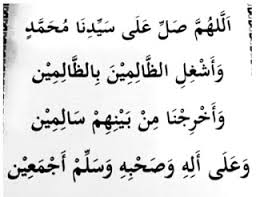 اَللّٰهُمَّ صَلِّ عَلَى سَيِّدِنَا مُحَمَّدٍ
وَأَشْغِلِ الظَّالِمِيْنَ بِالظَّالِمِيْنَ
وَأَخْرِجْنَا مِنْ بَيْنِهِمْ سَالِمِيْنَ
وَعَلَى أَلِهِ وَصَحْبِهِ وَسَلِّمْ أَجْمَعِيْن